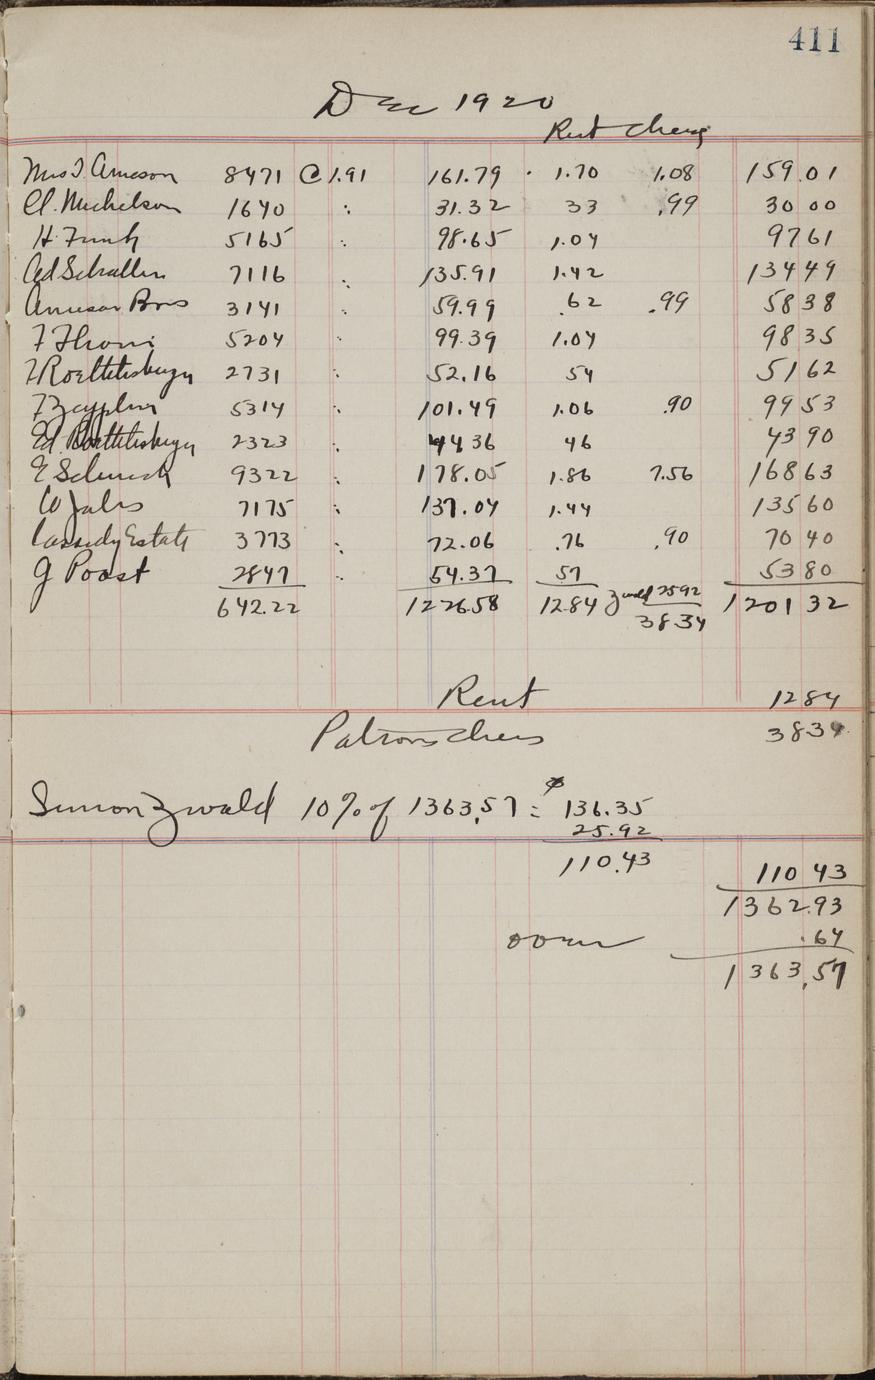 411
Dec 1920
Rent Chees
Mrs I. Arneson 8471 @ 1.91 161.79 1.70 1.08 159.01
Cl. Michelson 1640 " 31.32 33 .99 30 00
H. Funk 5165 " 98.65 1.04 97 61
Ad Schallen 7116 " 135.91 1.42 134 49
Arneson Bros 3141 " 59.99 .62 .99 58 38
F Thoni 5204 " 99.39 1.04 98 35
F Roethlisberger 2731 " 52.16 54 51 62
F 5314 " 101.49 1.06 .90 99 53
Ed. Roethlisberger 2323 " 44 36 46 43 90
E Schenck 9322 " 178.05 1.86 7.56 168 63
W Jahs 7175 " 137.04 1.44 135 60
Cassidy Estate 3773 " 72.06 .76 .90 70 40
G Poast 2847 " 54.37 57 53 80
642.22 1226.58 12.84 Zwald 25 92 1201 32
38.34
Rent 12 84
Patrons Chees 38 34
Simon Zwald 10% of 1363,57 = 136.35
25.92
110.43 110 43
1362.93
over .64
1363,57